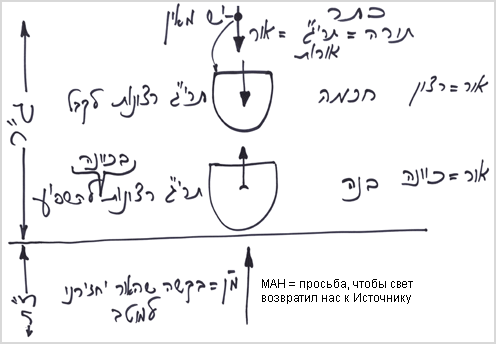 כתר
יש מאין
אור = תרי"ג = תורה
אורות
תרי"ג רצונות לקבל
חכמה
אור=רצון
בכוונה
תרי"ג רצונות להשפיע
בנה
אור=כוונה
מ"ן = בקשה שהאור יחזירנו
למוטב
МАН = просьба, чтобы свет
возвратил нас к Источнику